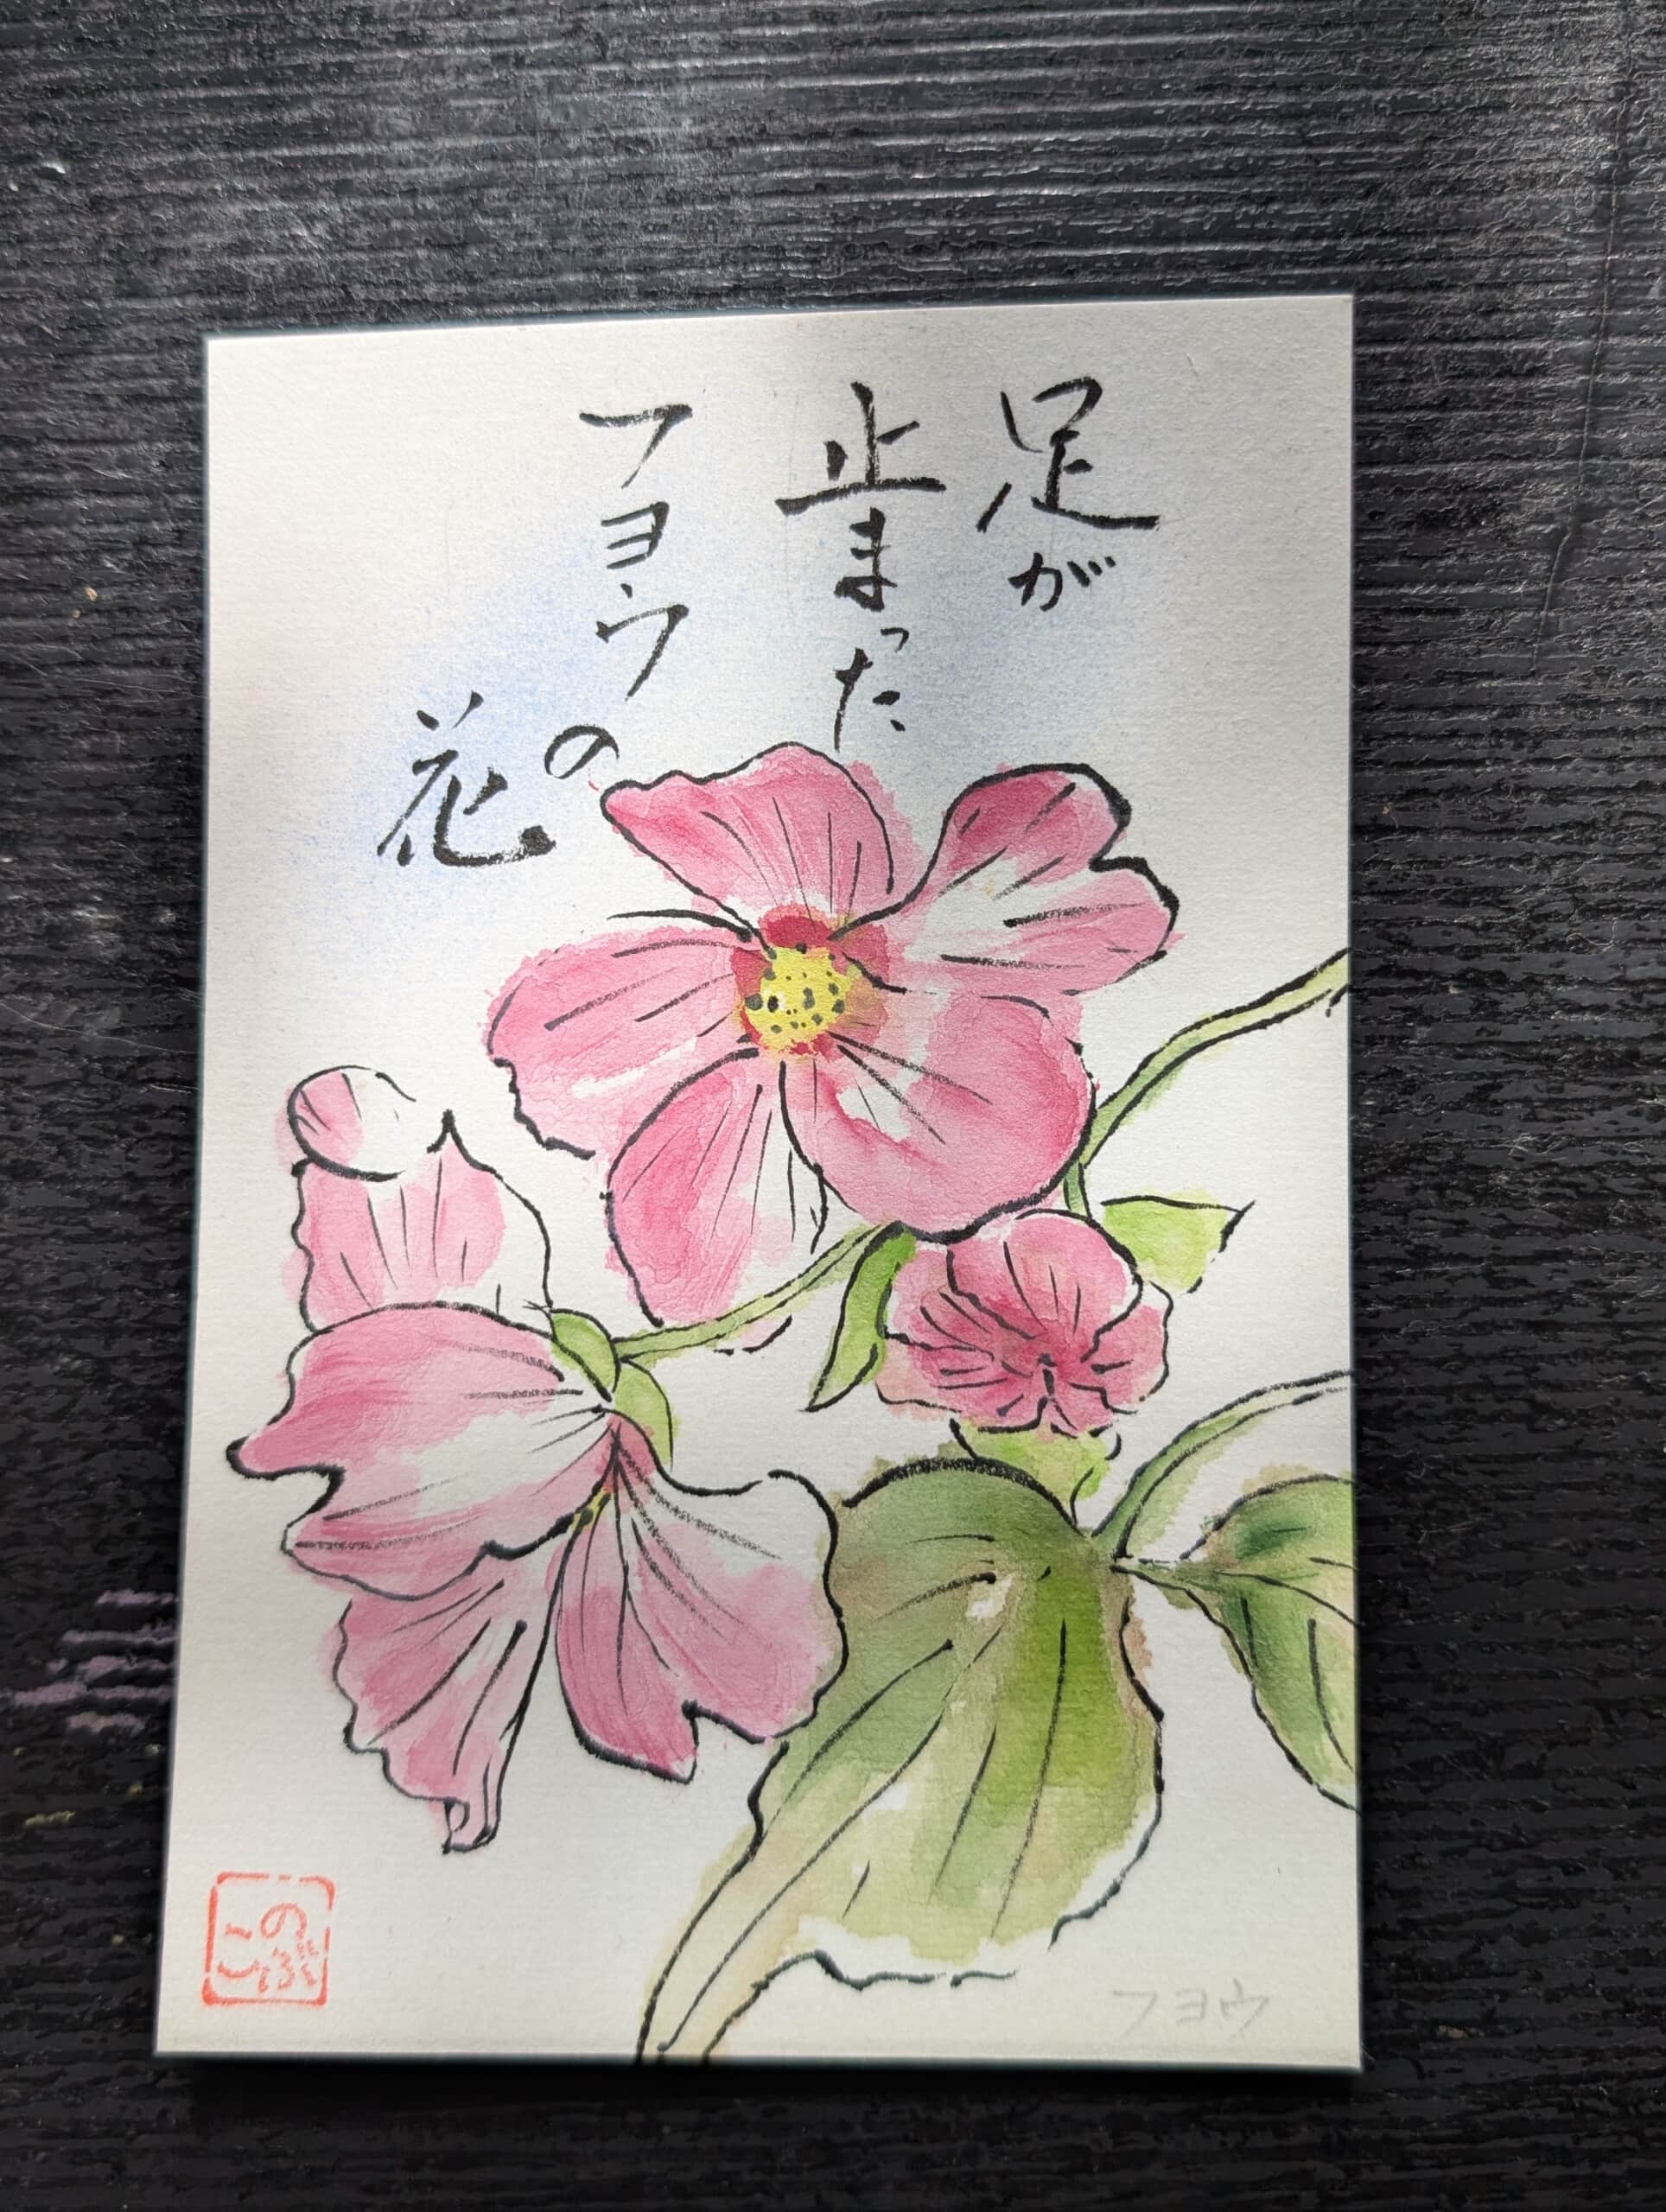 足が
止まった
フヨウの
花
のぶこ
フヨウ